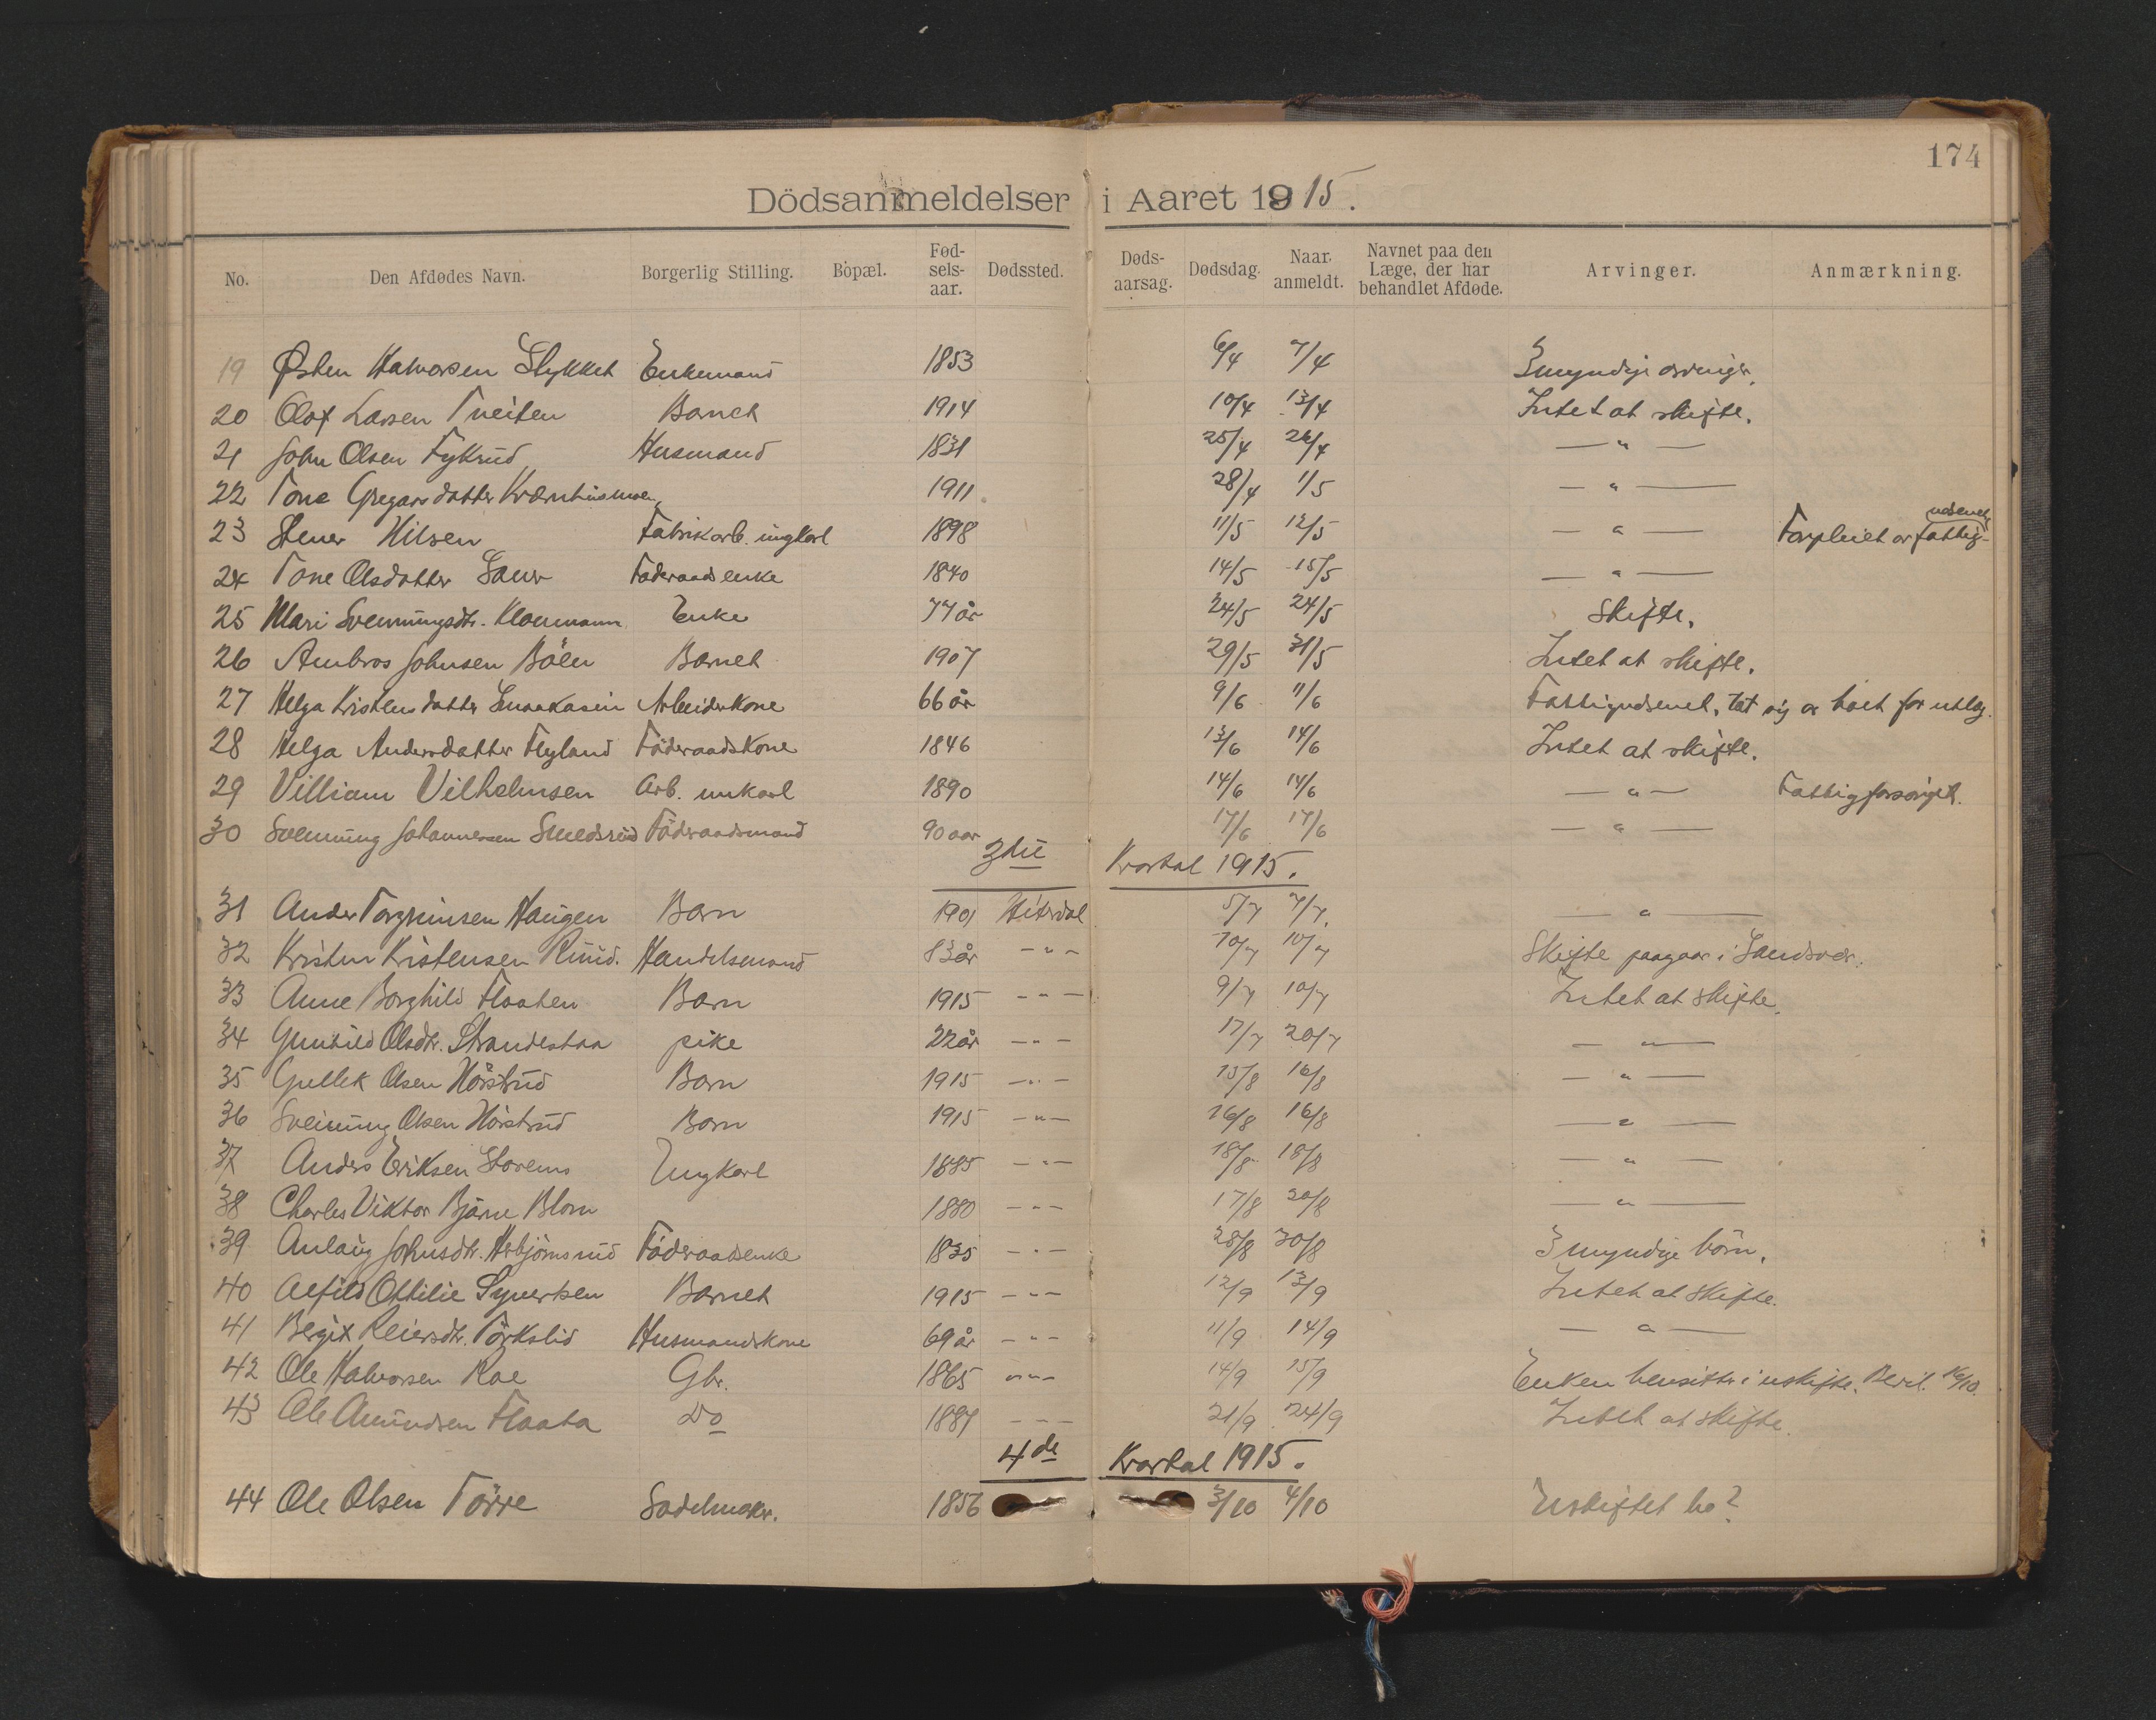 174
Dödsanmeldelser i Aaret 1915.
No. Den Afdødes Navn. Borgerlig Stilling. Bopæl. Fød-sels-aar. Dødssted. Døds-aarsag. Dødsdag. Naar anmeldt. Navnet paa den Læge, der har behandlet Afdøde. Arvinger. Anmærkning.
19 Østen Halvorsen Stykket Enkemand 1853 6/4 7/4 3 myndige arvinger.
20 Olaf Larsen Tveiten Barnet 1914 10/4 13/4 Intet at skifte.
21 John Olsen Fykrud Husmand 1831 25/4 26/4 — " —
22 Tone Gregarsdatter Kvernhusmoen 1911 28/4 1/5 — " —
23 Stener Nilsen Fabrikarb. ungkarl 1898 11/5 12/5 — " — Forpleiet av fattig-
udsenet
24 Tone Olsdatter Føderaadsenke 1840 14/5 15/5 — " —
25 Mari Svenningsdtr. Enke 77 år 24/5 24/5 Skifte.
26 Ambros Johnsen Bölen Barnet 1907 29/5 31/5 Intet at skifte.
27 Helga Kristensdatter Arbeiderkone 66 år 9/6 11/6 Fattigudsenet, tat sig av boet for utlæg.
28 Helga Andersdatter Flyland Föderaadskone 1846 13/6 14/6 Intet at skifte.
29 Villiam Vilhelmsen Arb. unkarl 1890 14/6 14/6 — " — Fattigforsörget.
30 Svenning Johannessen Smedsrud Föderaadsmand 90 aar 17/6 17/6 — " —
3die Kvartal 1915.
31 Anders Torgrimsen Haugen Barn 1901 Hiterdal 5/7 7/7. — " —
32 Kristen Kristensen Ruud. Handelsmand 83 år — " — 10/7 10/7 Skifte paagaar i Sandsvær.
33 Anne Borghild Flaaten Barn 1915 — " — 9/7 10/7 Intet at skifte.
34 Gunhild Olsdtr. Strandestaa pike 22 år — " — 17/7 20/7 — " —
35 Gullek Olsen Nörstrud Barn 1915 — " — 15/8 16/8 — " —
36 Sveinung Olsen Nörstrud Barn 1915 — " — 16/8 16/8 — " —
37 Anders Eriksen Storemo Ungkarl 1885 — " — 18/8 18/8 — " —
38 Charles Viktor Bjarne Blom 1880 — " — 17/8 20/8 — " —
39 Anlaug Johnsdtr. Herbjörnsrud Föderaadsenke 1835 — " — 28/8 30/8 3 myndige börn.
40 Alfild Ottilie Syvertsen Barnet 1915 — " — 12/9 13/9 Intet at skifte.
41 Bergit Reiersdtr. Törkslid Husmandskone 69 år — " — 11/9 14/9 — " —
42 Ole Halvorsen Roe Gbr. 1865 — " — 14/9 15/9 Enken hensitter i uskifte. Bevil. 16/10.
43 Ole Amundsen Flaata Do 1887 — — — 21/9 24/9 Intet at skifte.
4de Kvartal 1915.
44 Ole Olsen Törre Sadelmaker. 1856 3/10 4/10 Uskiftet bo?